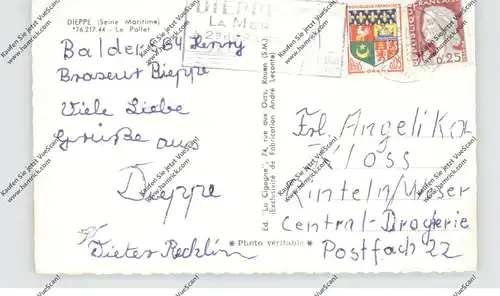 DIEPPE (Seine Maritime)
*76.217.44 - Le Pollet
DIEPPE
LA MER
REPUBLIQUE FRANÇAISE
ORAN
0,05
FRANÇAISE
0,25
Dieppe
Viele Liebe
Grüße aus
Dieppe
Dieter
Ed. "La Cigogne", 74, rue aux Ours, Rouen (S.M.)
(Exclusivité de Fabrication André Leconte)
* Photo véritable *
Frl. Angelika
Kloss
Rinteln/Weser
Central-Drogerie
Postfach 22
Kaufen Sie jetzt VueScan!
www.hamrick.com